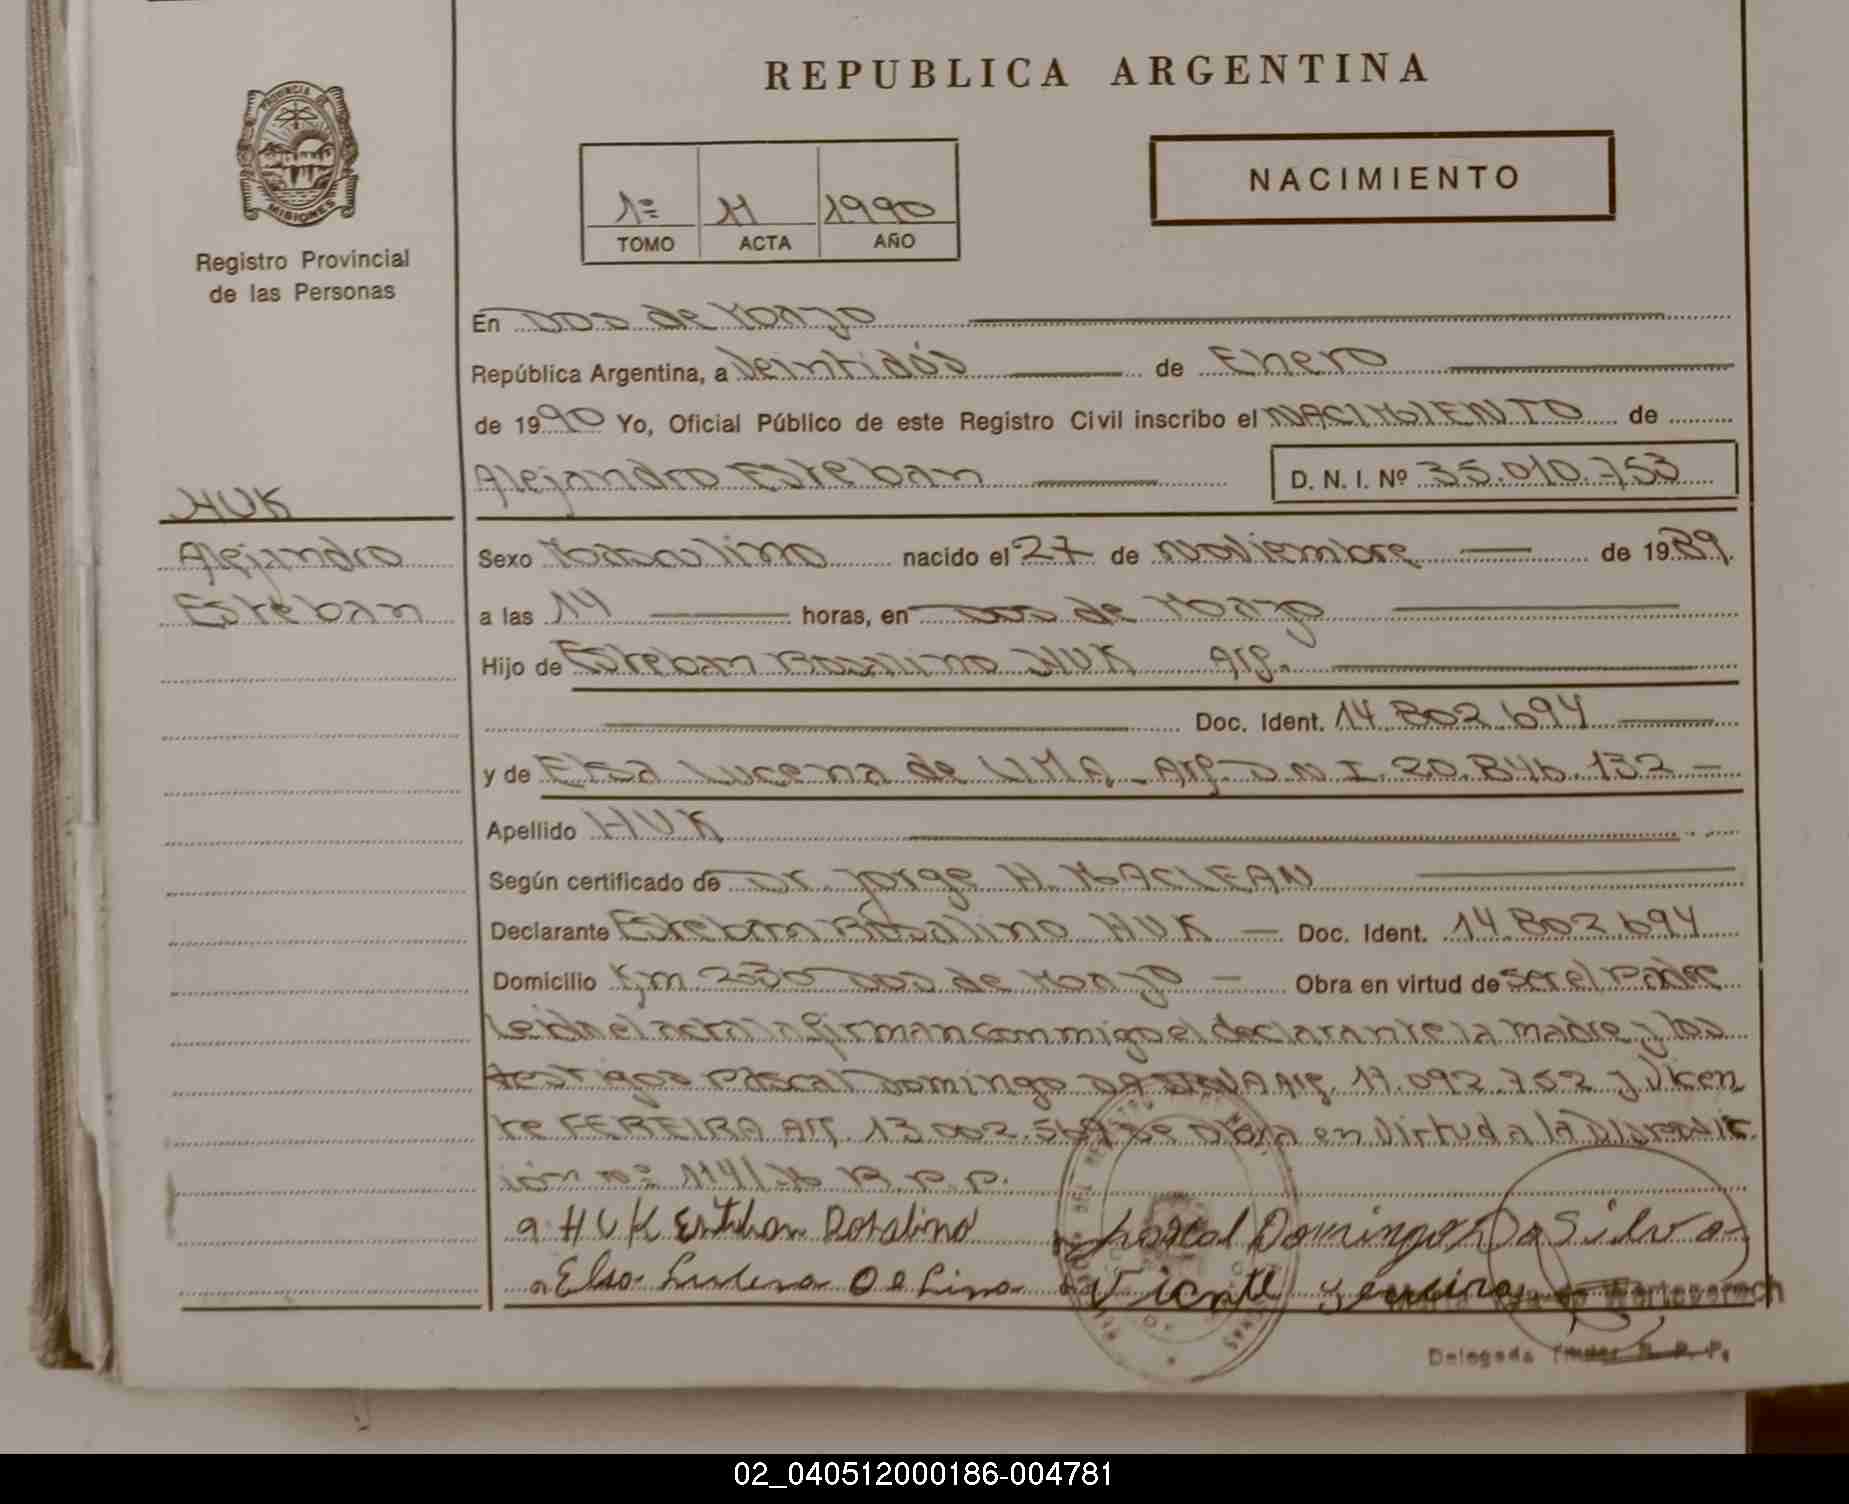 REPUBLICA ARGENTINA
PROVINCIA DE
MISIONES
Registro Provincial
de las Personas
1º 11 1990
TOMO ACTA AÑO
NACIMIENTO
En Dos de Mayo
República Argentina, a Veintidós de Enero
de 1990 Yo, Oficial Público de este Registro Civil inscribo el NACIMIENTO de
Alejandro Esteban D. N. I. Nº 35.010.753
HUK
Alejandro
Esteban
Sexo Masculino nacido el 27 de noviembre de 1989.
a las 14 horas, en Dos de Mayo
Hijo de Esteban Rosalino HUK Arg.
Doc. Ident. 14.802.694
y de Elsa Lucena de LIMA - Arg. D.N.I. 20.846.132 -
Apellido HUK
Según certificado de Dr. Jorge H. MACLEAN
Declarante Esteban Rosalino HUK - Doc. Ident. 14.802.694
Domicilio Km 230 Dos de Mayo - Obra en virtud de ser el Padre
Leida el acta la firman conmigo el declarante la madre y los
testigos Pascal Domingo DA SILVA Arg. 17.092.752 y Vicen
te FERREIRA Arg. 13.002. Se obra en virtud a la Disposic
ión nº 114/ R.P.P.
a HUK Esteban Rosalino Pascal Domingo Da Silva
a Elsa Lucena De Lima Vicente Ferreira
Delegada Titular R. P. P.
02_040512000186-004781